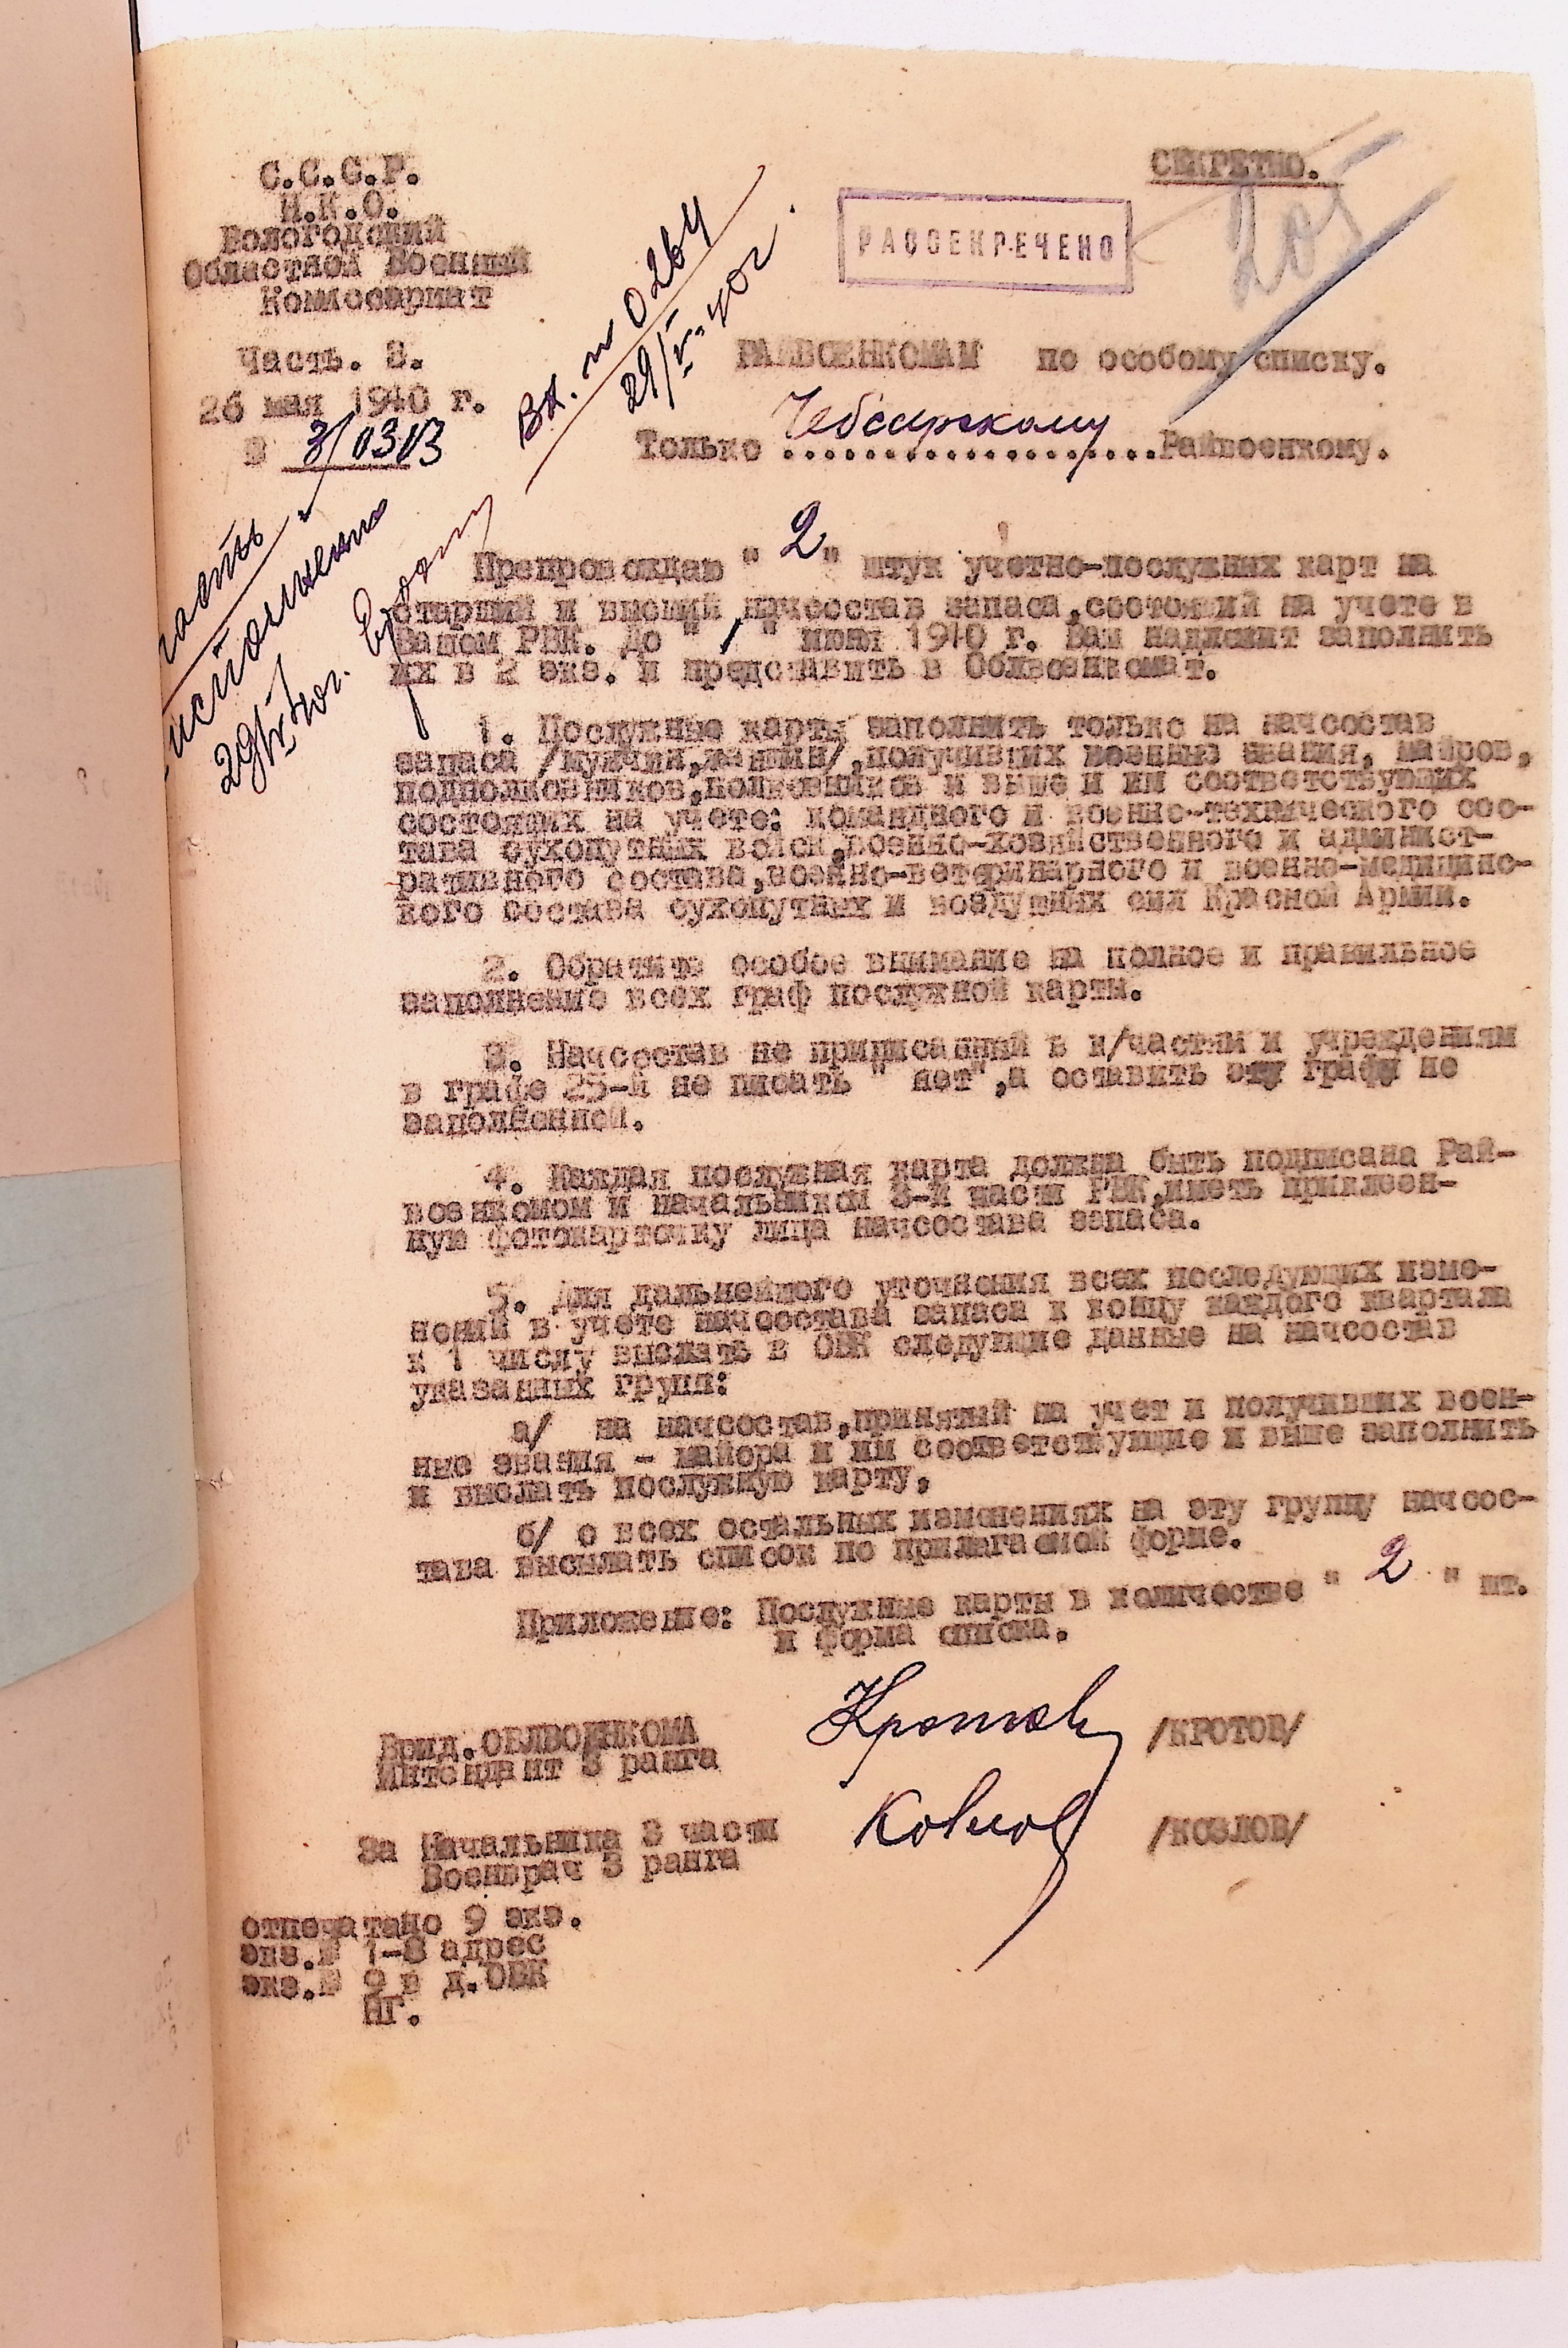 С.С.С.Р.
Н.К.О.
Вологодский
Областной Военный
Комиссариат
Часть. 3.
26 мая 1940 г.
№ 3/0303
СЕКРЕТНО.
РАССЕКРЕЧЕНО
205
Вх. № 0264
29/V-40г.
РАЙВОЕНКОМАМ по особому списку.
Только Чебсарскому ...................Райвоенкому.
часть
исполнению
29/V 40г.
Препровождаю " 2 " штук учетно-послужных карт на
старший и высший начсостав запаса,состоящий на учете в
Вашем РВК. До " 1 " июня 1940 г. Вам надлежит заполнить
их в 2 экз. и представить в Облвоенкомат.
1. Послужные карты заполнить только на начсостав
запаса /мужчин,женщин/,получивших военные звания, майров,
подполковников,полковников и выше и им соответствующих
состоящих на учете: командного и военно-технического сос-
тава сухопутных войск,военно-хозяйственного и админист-
ративного состава,военно-ветеринарного и военно-медицинс-
кого состава сухопутных и воздушных сил Красной Армии.
2. Обратить особое внимание на полное и правильное
заполнение всех граф послужной карты.
3. Начсостав не приписанный в в/частям и учреждениям
в графе 25-й не писать " нет",а оставить эту графу не
заполненной.
4. Каждая послужная карта должна быть подписана Рай-
военкомом и начальником 3-й части РВК,иметь приклеен-
ную фотокарточку лица начсостава запаса.
5. Для дальнейшего уточнения всех последующих изме-
нений в учете начсостава запаса к концу каждого квартала
к 1 числу высылать в ОВК следующие данные на начсостав
указанных групп:
а/ на начсостав,принятый на учет и получивших воен-
ные звания - майора и им соответствующие и выше заполнить
и выслать послужную карту,
б/ о всех остальных изменениях на эту группу начсос-
тава высылать список по прилагаемой форме.
Приложение: Послужные карты в количестве " 2 " шт.
и форма списка.
Врид.ОБЛВОЕНКОМА
Интендант 3 ранга
Кротов
/КРОТОВ/
За Начальника 3 части
Военврач 3 ранга
Козлов
/КОЗЛОВ/
отпечатано 9 экз.
экз.№ 1-8 адрес
экз.№ 9 в д.ОВК
НГ.